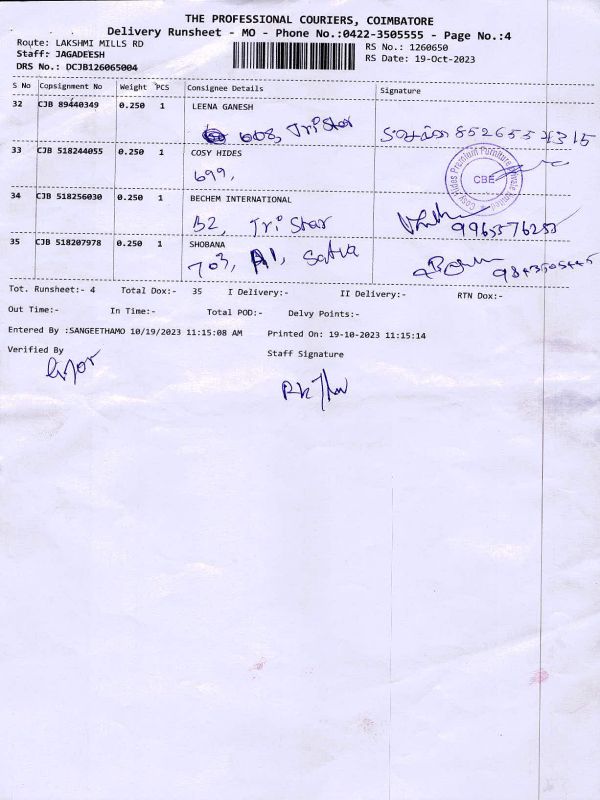 THE PROFESSIONAL COURIERS, COIMBATORE
Delivery Runsheet - MO - Phone No.:0422-3505555 - Page No.:4
Route: LAKSHMI MILLS RD
RS No.: 1260650
Staff: JAGADEESH
RS Date: 19-Oct-2023
DRS No.: DCJB126065004
S No Copsignment No Weight PCS Consignee Details Signature
32 CJB 89440349 0.250 1 LEENA GANESH
608, Tri Star 8526557315
33 CJB 518244055 0.250 1 COSY HIDES
699,
Cosy Hides Premium Furniture Private Limited
CBE
34 CJB 518256030 0.250 1 BECHEM INTERNATIONAL
B2, Tri Star
35 CJB 518207978 0.250 1 SHOBANA
703, A1,
Tot. Runsheet:- 4 Total Dox:- 35 I Delivery:- II Delivery:- RTN Dox:-
Out Time:- In Time:- Total POD:- Delvy Points:-
Entered By :SANGEETHAMO 10/19/2023 11:15:08 AM Printed On: 19-10-2023 11:15:14
Verified By Staff Signature